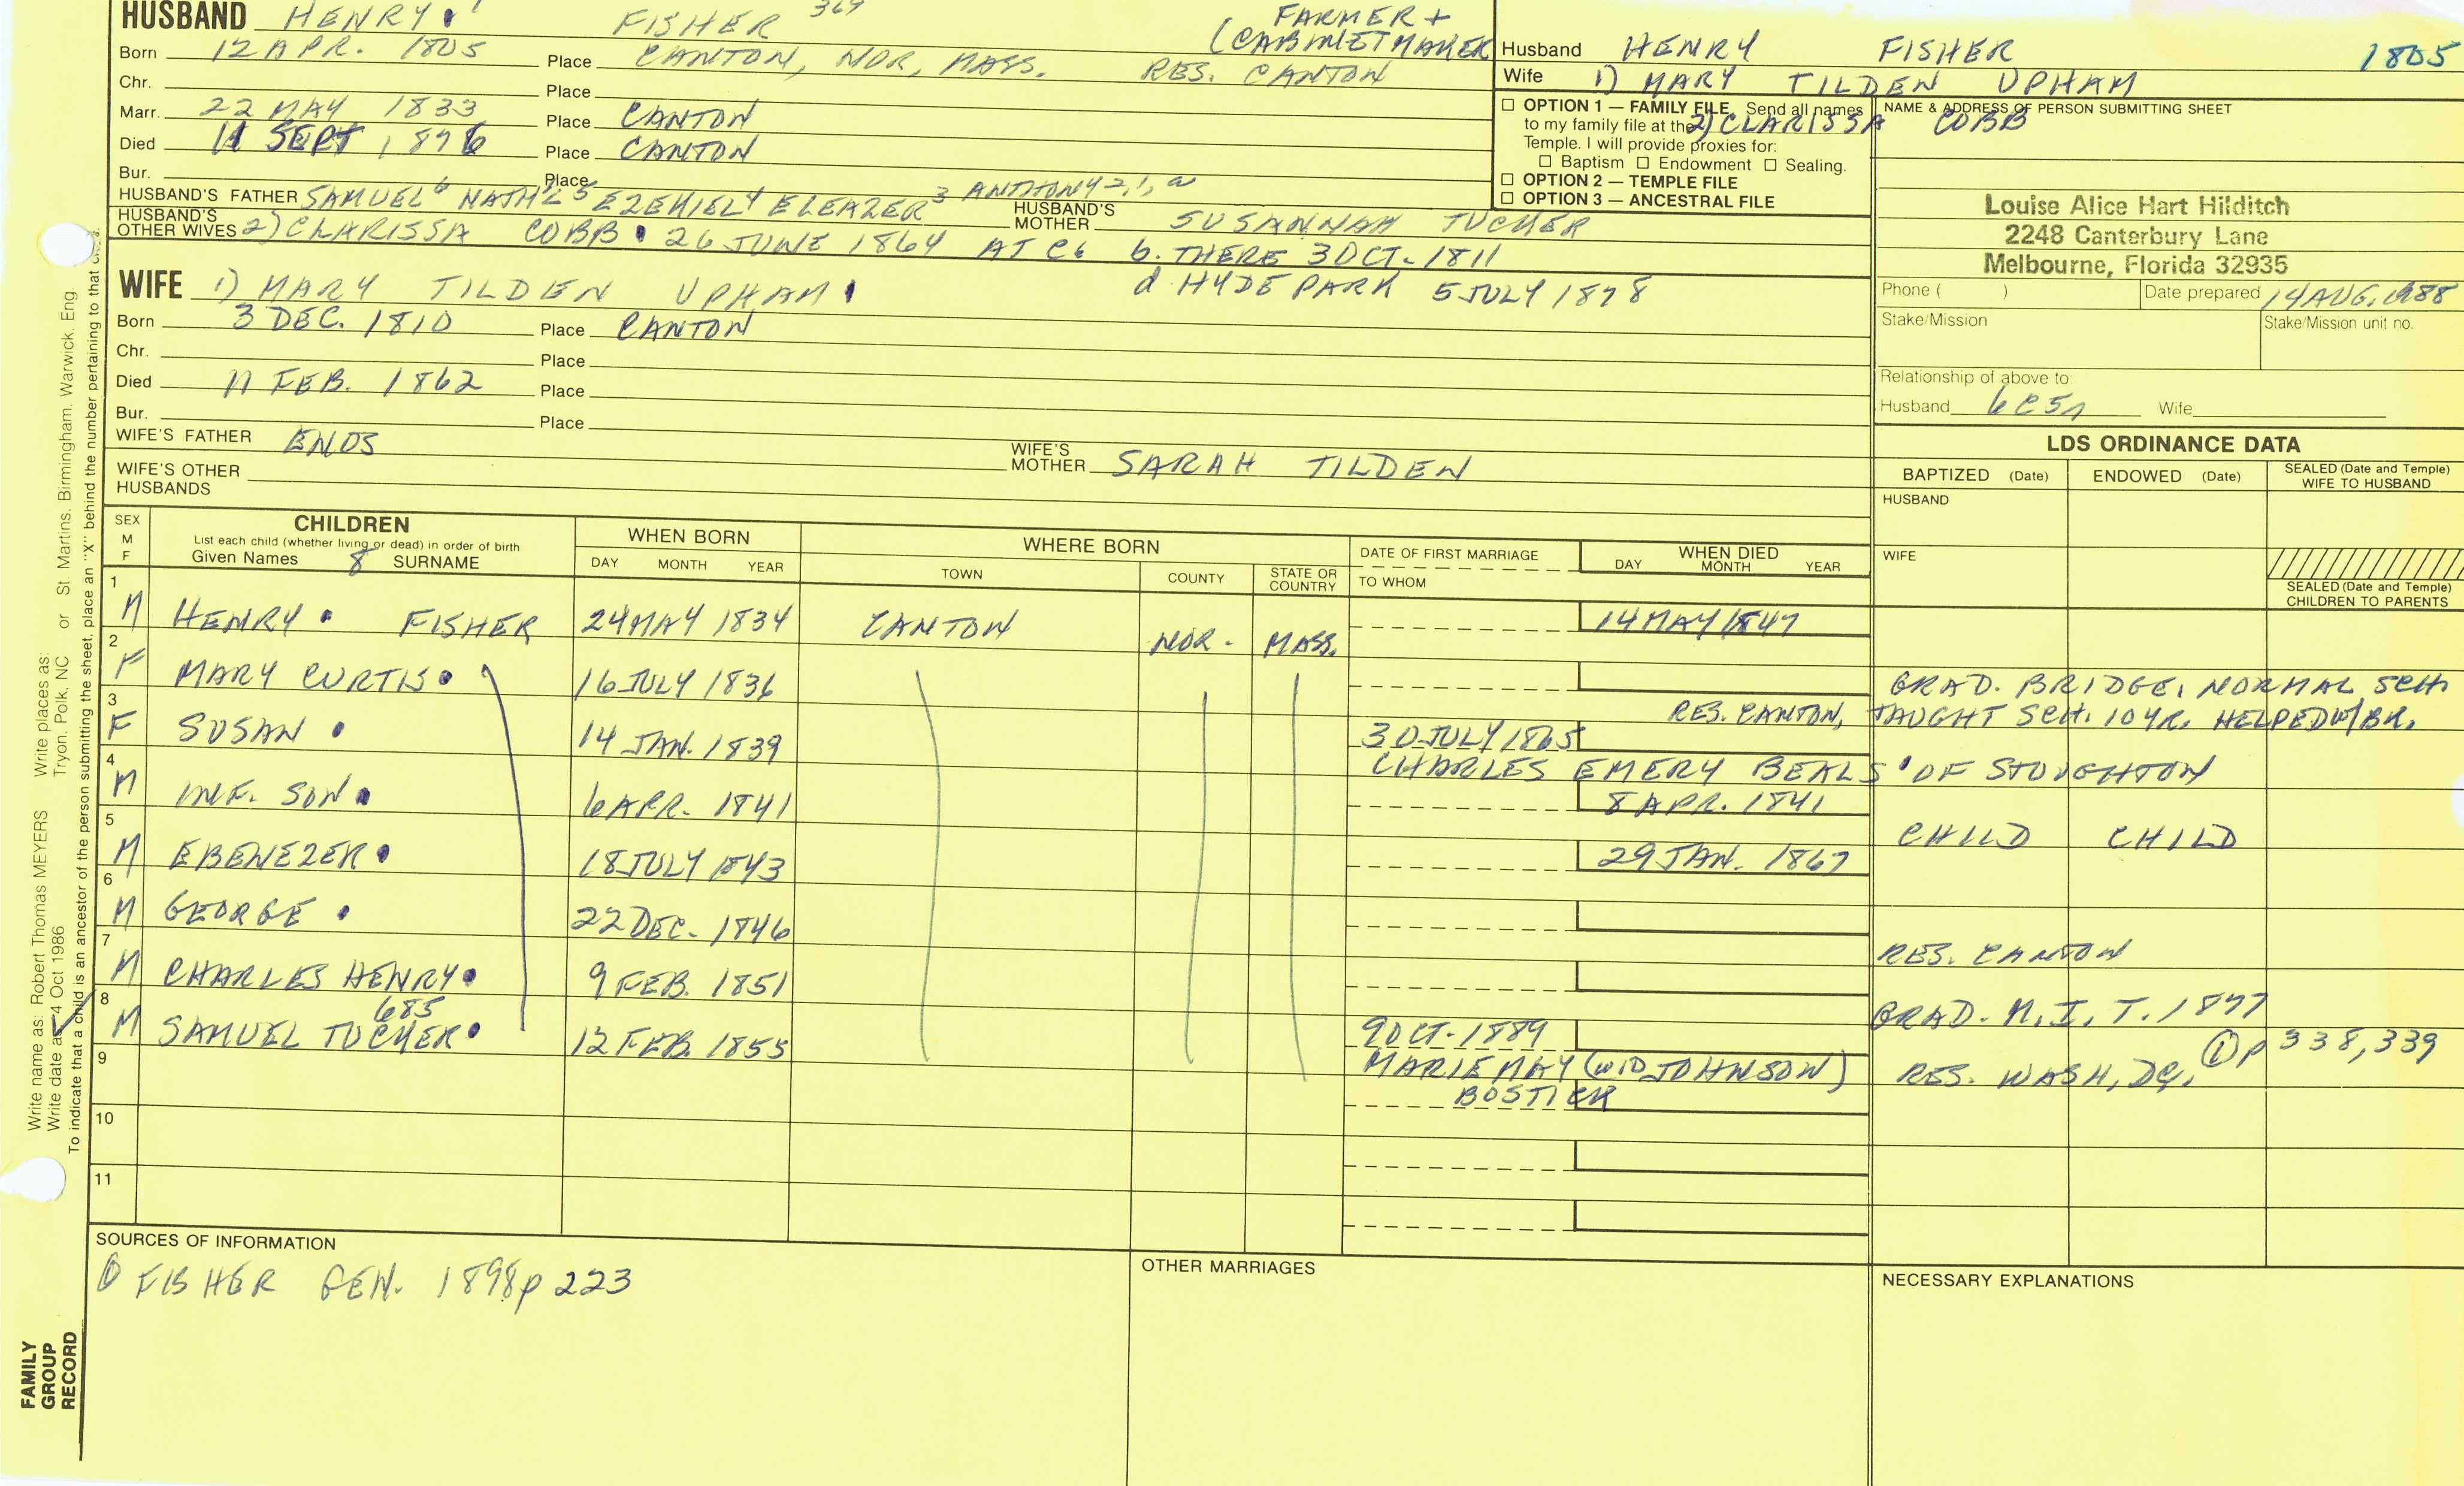 HUSBAND HENRY FISHER 369
FARMER +
(CABINETMAKER
Born 12 APR. 1805 Place CANTON, NOR, MASS. RES. CANTON
Chr. Place
Marr. 22 MAY 1833 Place CANTON
Died 11 SEPT, 1876 Place CANTON
Bur. Place
HUSBAND'S FATHER SAMUEL6 NATH'L5 EZEKIEL4 ELEAZER3 ANTHONY2,1,a
HUSBAND'S MOTHER SUSANNAH TUCKER
HUSBAND'S OTHER WIVES 2) CLARISSA COBB 26 JUNE 1864 AT C6 b. THERE 3 OCT. 1811
d. HYDE PARK 5 JULY 1878
WIFE 1) MARY TILDEN UPHAM
Born 3 DEC. 1810 Place CANTON
Chr. Place
Died 11 FEB. 1862 Place
Bur. Place
WIFE'S FATHER ENOS
WIFE'S MOTHER SARAH TILDEN
WIFE'S OTHER HUSBANDS
Husband HENRY FISHER 1805
Wife 1) MARY TILDEN UPHAM
2) CLARISSA COBB
☐ OPTION 1 — FAMILY FILE Send all names
to my family file at the
Temple. I will provide proxies for:
☐ Baptism ☐ Endowment ☐ Sealing.
☐ OPTION 2 — TEMPLE FILE
☐ OPTION 3 — ANCESTRAL FILE
NAME & ADDRESS OF PERSON SUBMITTING SHEET
Louise Alice Hart Hilditch
2248 Canterbury Lane
Melbourne, Florida 32935
Phone ( ) Date prepared 14 AUG, 1988
Stake/Mission Stake/Mission unit no.
Relationship of above to:
Husband 6C5r Wife
LDS ORDINANCE DATA
BAPTIZED (Date) ENDOWED (Date) SEALED (Date and Temple) WIFE TO HUSBAND
HUSBAND
WIFE
SEALED (Date and Temple) CHILDREN TO PARENTS
SEX M F
CHILDREN
List each child (whether living or dead) in order of birth
Given Names 8 SURNAME
WHEN BORN
DAY MONTH YEAR
WHERE BORN
TOWN COUNTY STATE OR COUNTRY
DATE OF FIRST MARRIAGE
TO WHOM
WHEN DIED
DAY MONTH YEAR
1 M HENRY FISHER 24 MAY 1834 CANTON NOR. MASS. 14 MAY 1847
2 F MARY CURTIS 16 JULY 1836 GRAD. BRIDGE. NORMAL SCH.
RES. CANTON, TAUGHT SCH. 10 YR. HELPED W/BR.
3 F SUSAN 14 JAN. 1839 30 JULY 1865
CHARLES EMERY BEALS OF STOUGHTON
4 M INF. SON 6 APR. 1841 8 APR. 1841 CHILD CHILD
5 M EBENEZER 18 JULY 1843 29 JAN. 1867
6 M GEORGE 22 DEC. 1846 RES. CANTON
7 M CHARLES HENRY 9 FEB. 1851 GRAD. M.I.T. 1877
8 M SAMUEL TUCKER 685 12 FEB. 1855 9 OCT. 1889 ① p 338,339
MARIE MAY (WID JOHNSON) RES. WASH, DC,
BOSTICK
9
10
11
SOURCES OF INFORMATION
① FISHER GEN. 1898 p 223
OTHER MARRIAGES
NECESSARY EXPLANATIONS
Write name as: Robert Thomas MEYERS Write places as: St. Martins, Birmingham, Warwick, Eng
Write date as: 4 Oct 1986 Tryon, Polk, NC or
To indicate that a child is an ancestor of the person submitting the sheet, place an "X" behind the number pertaining to that
FAMILY
GROUP
RECORD